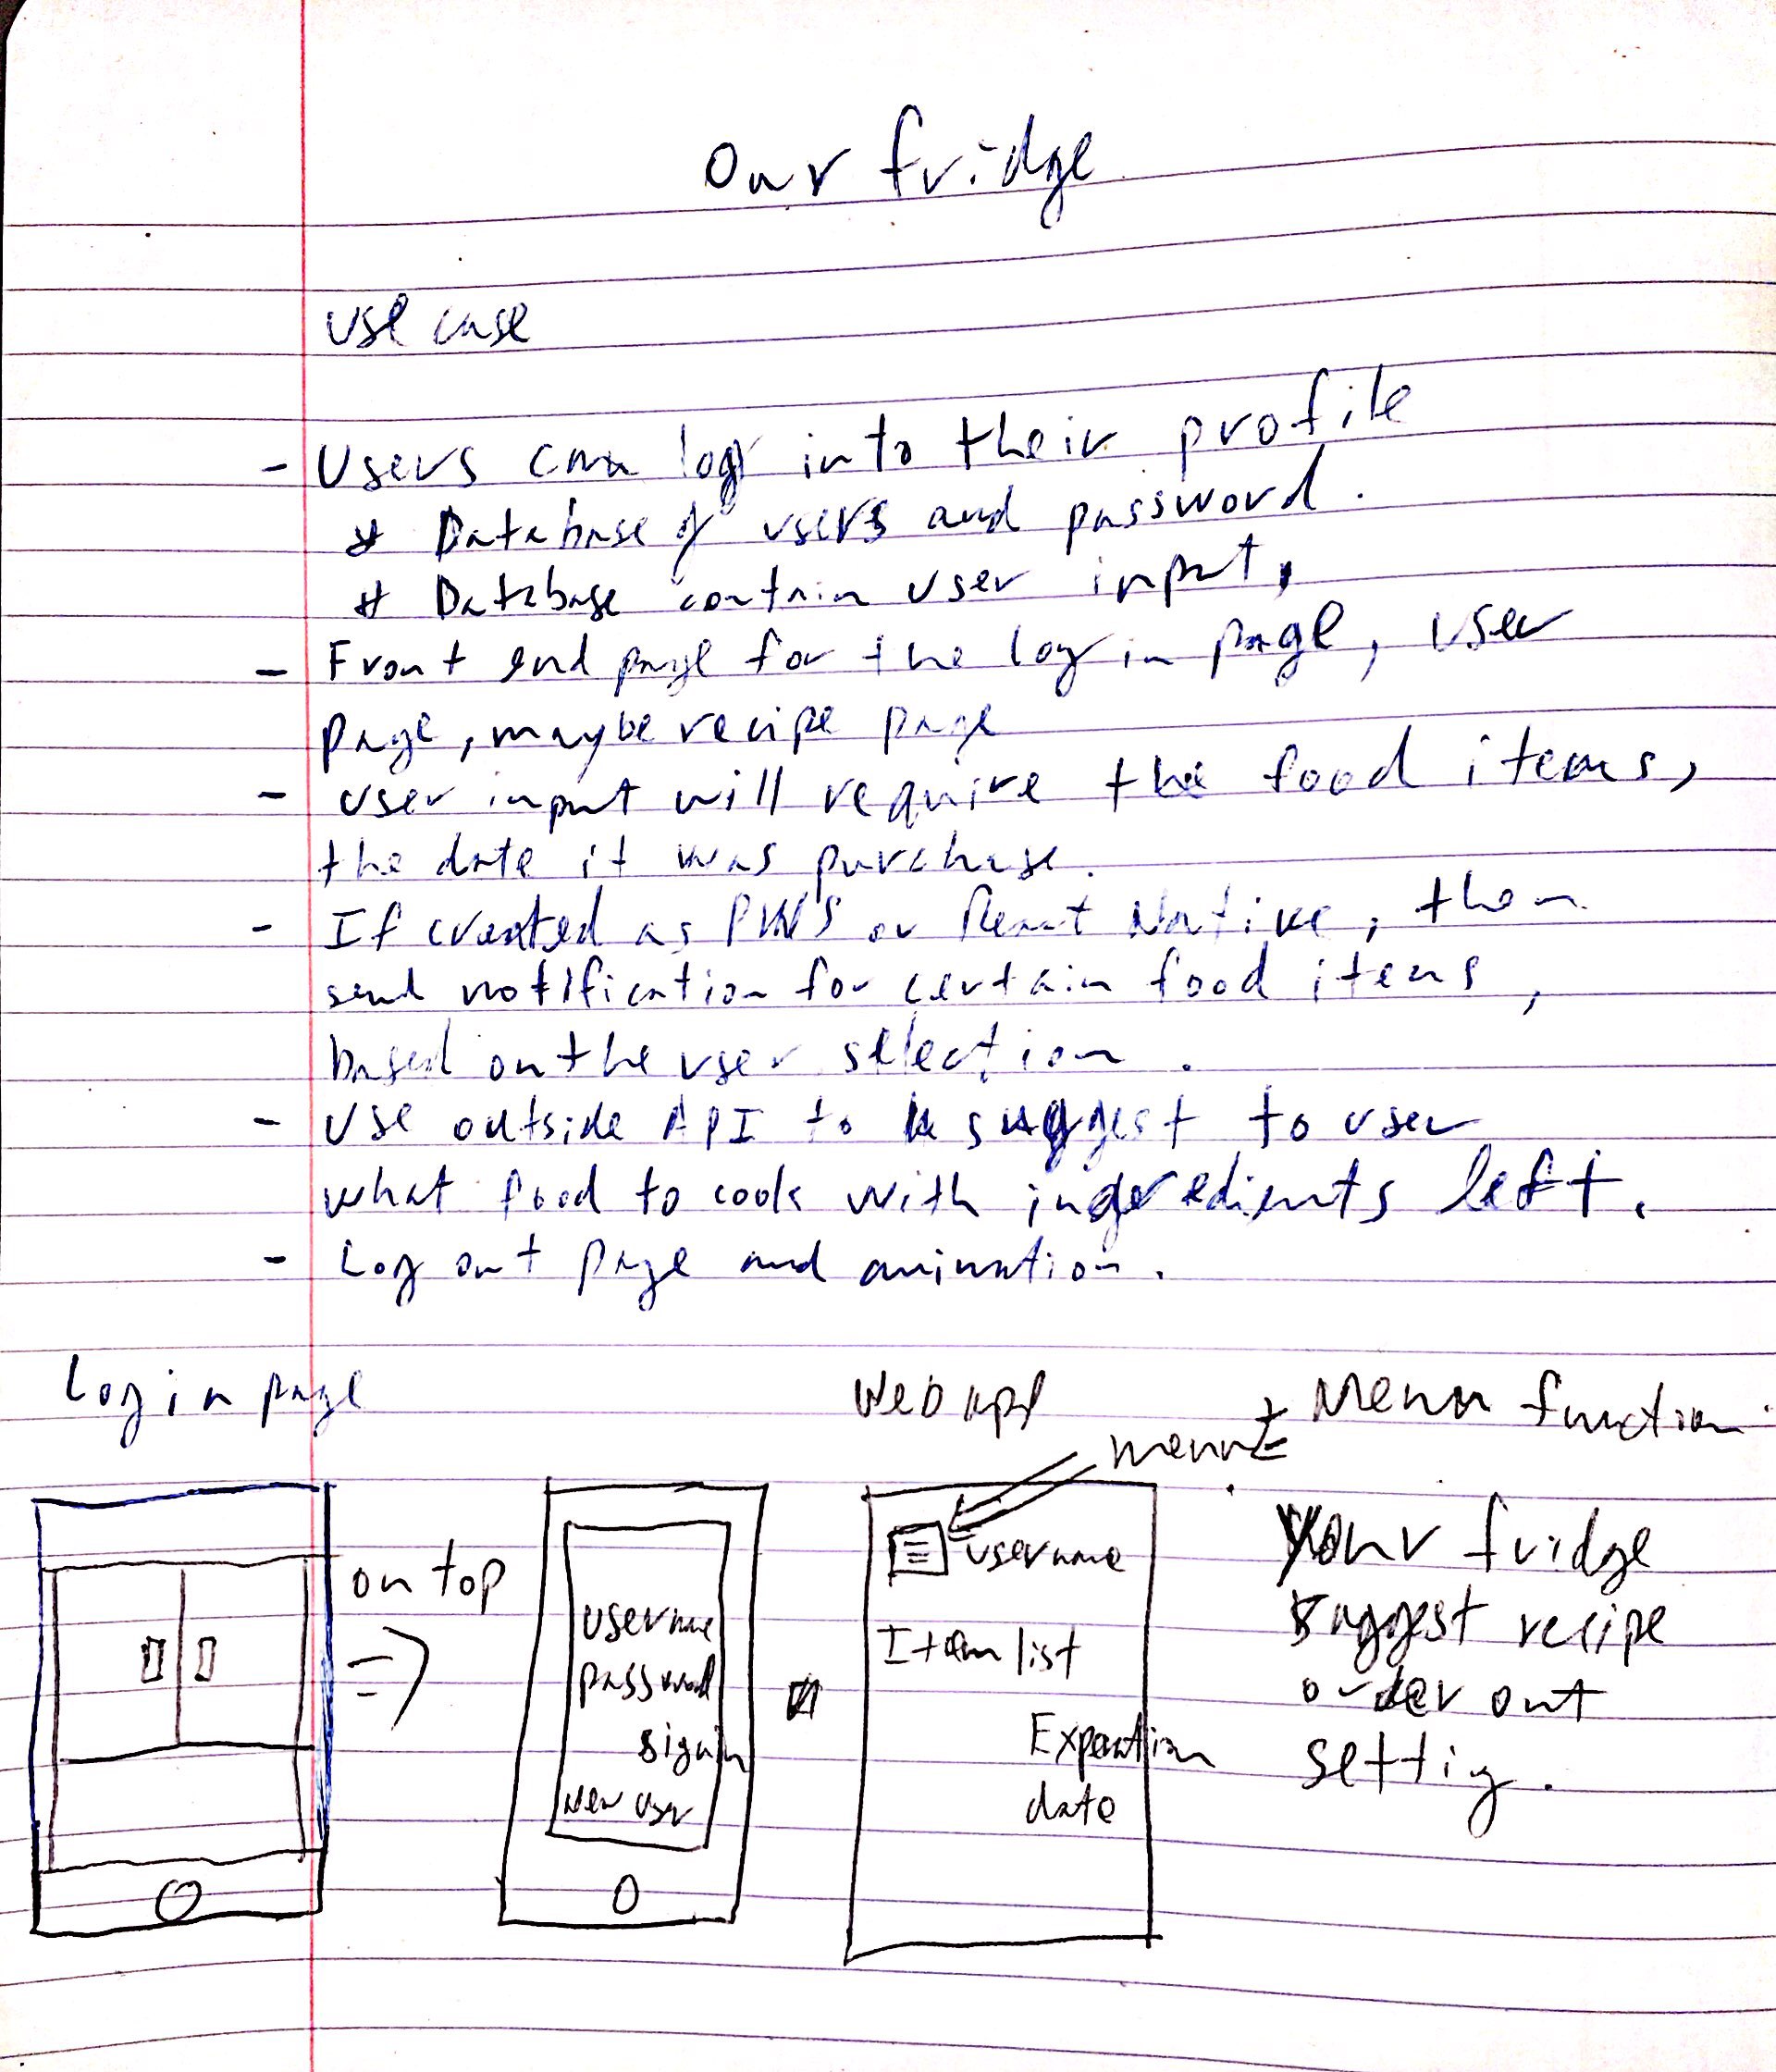 Our fridge
use case
- Users can log into their profile
* Database of users and password.
* Database contain user input,
- Front end page for the log in page, user
page, maybe recipe page
- user input will require the food items,
the date it was purchase.
- If created as or React Native, then
send notification for certain food items,
based on the user selection.
- Use outside API to suggest to user
what food to cook with ingredients left.
- Log out page and animation.
Log in page
Web app
menu
Menu function
on top
username
password
sign in
new user
username
Item list
Expration
date
Your fridge
suggest recipe
order out
settig.